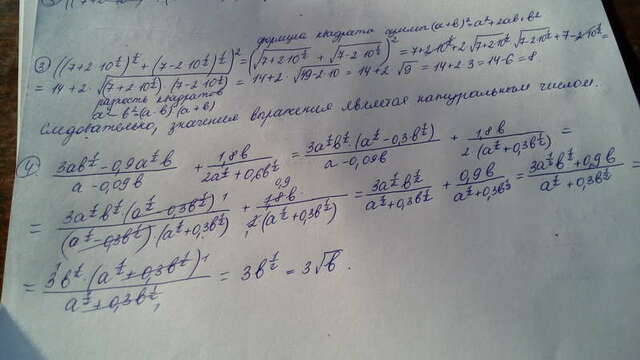 формула квадрата суммы (a+b)²=a²+2ab+b²
③ ((7+2·10^½)^½ + (7-2·10^½)^½)² = (√(7+2·10^½) + √(7-2·10^½))² = 7+2·10^½+2√(7+2·10^½)·√(7-2·10^½)+7-2·10^½=
= 14+2·√((7+2·10^½)·(7-2·10^½)) = 14+2·√(49-2·10) = 14+2·√9 = 14+2·3=14-6=8.
разность квадратов
a²-b²=(a-b)(a+b)
Следовательно, значение выражения является натуральным числом.
④ (3ab^½-0,9a^½b)/(a-0,09b) + 1,8b/(2a^½+0,6b^½) = (3a^½b^½·(a^½-0,3b^½))/(a-0,09b) + 1,8b/(2(a^½+0,3b^½)) =
= (3a^½b^½(a^½-0,3b^½))/((a^½-0,3b^½)·(a^½+0,3b^½)) + 1,8b/(2(a^½+0,3b^½)) = 3a^½b^½/(a^½+0,3b^½) + 0,9b/(a^½+0,3b^½) = (3a^½b^½+0,9b)/(a^½+0,3b^½) =
= (3b^½·(a^½+0,3b^½))/(a^½+0,3b^½) = 3b^½ = 3√b.